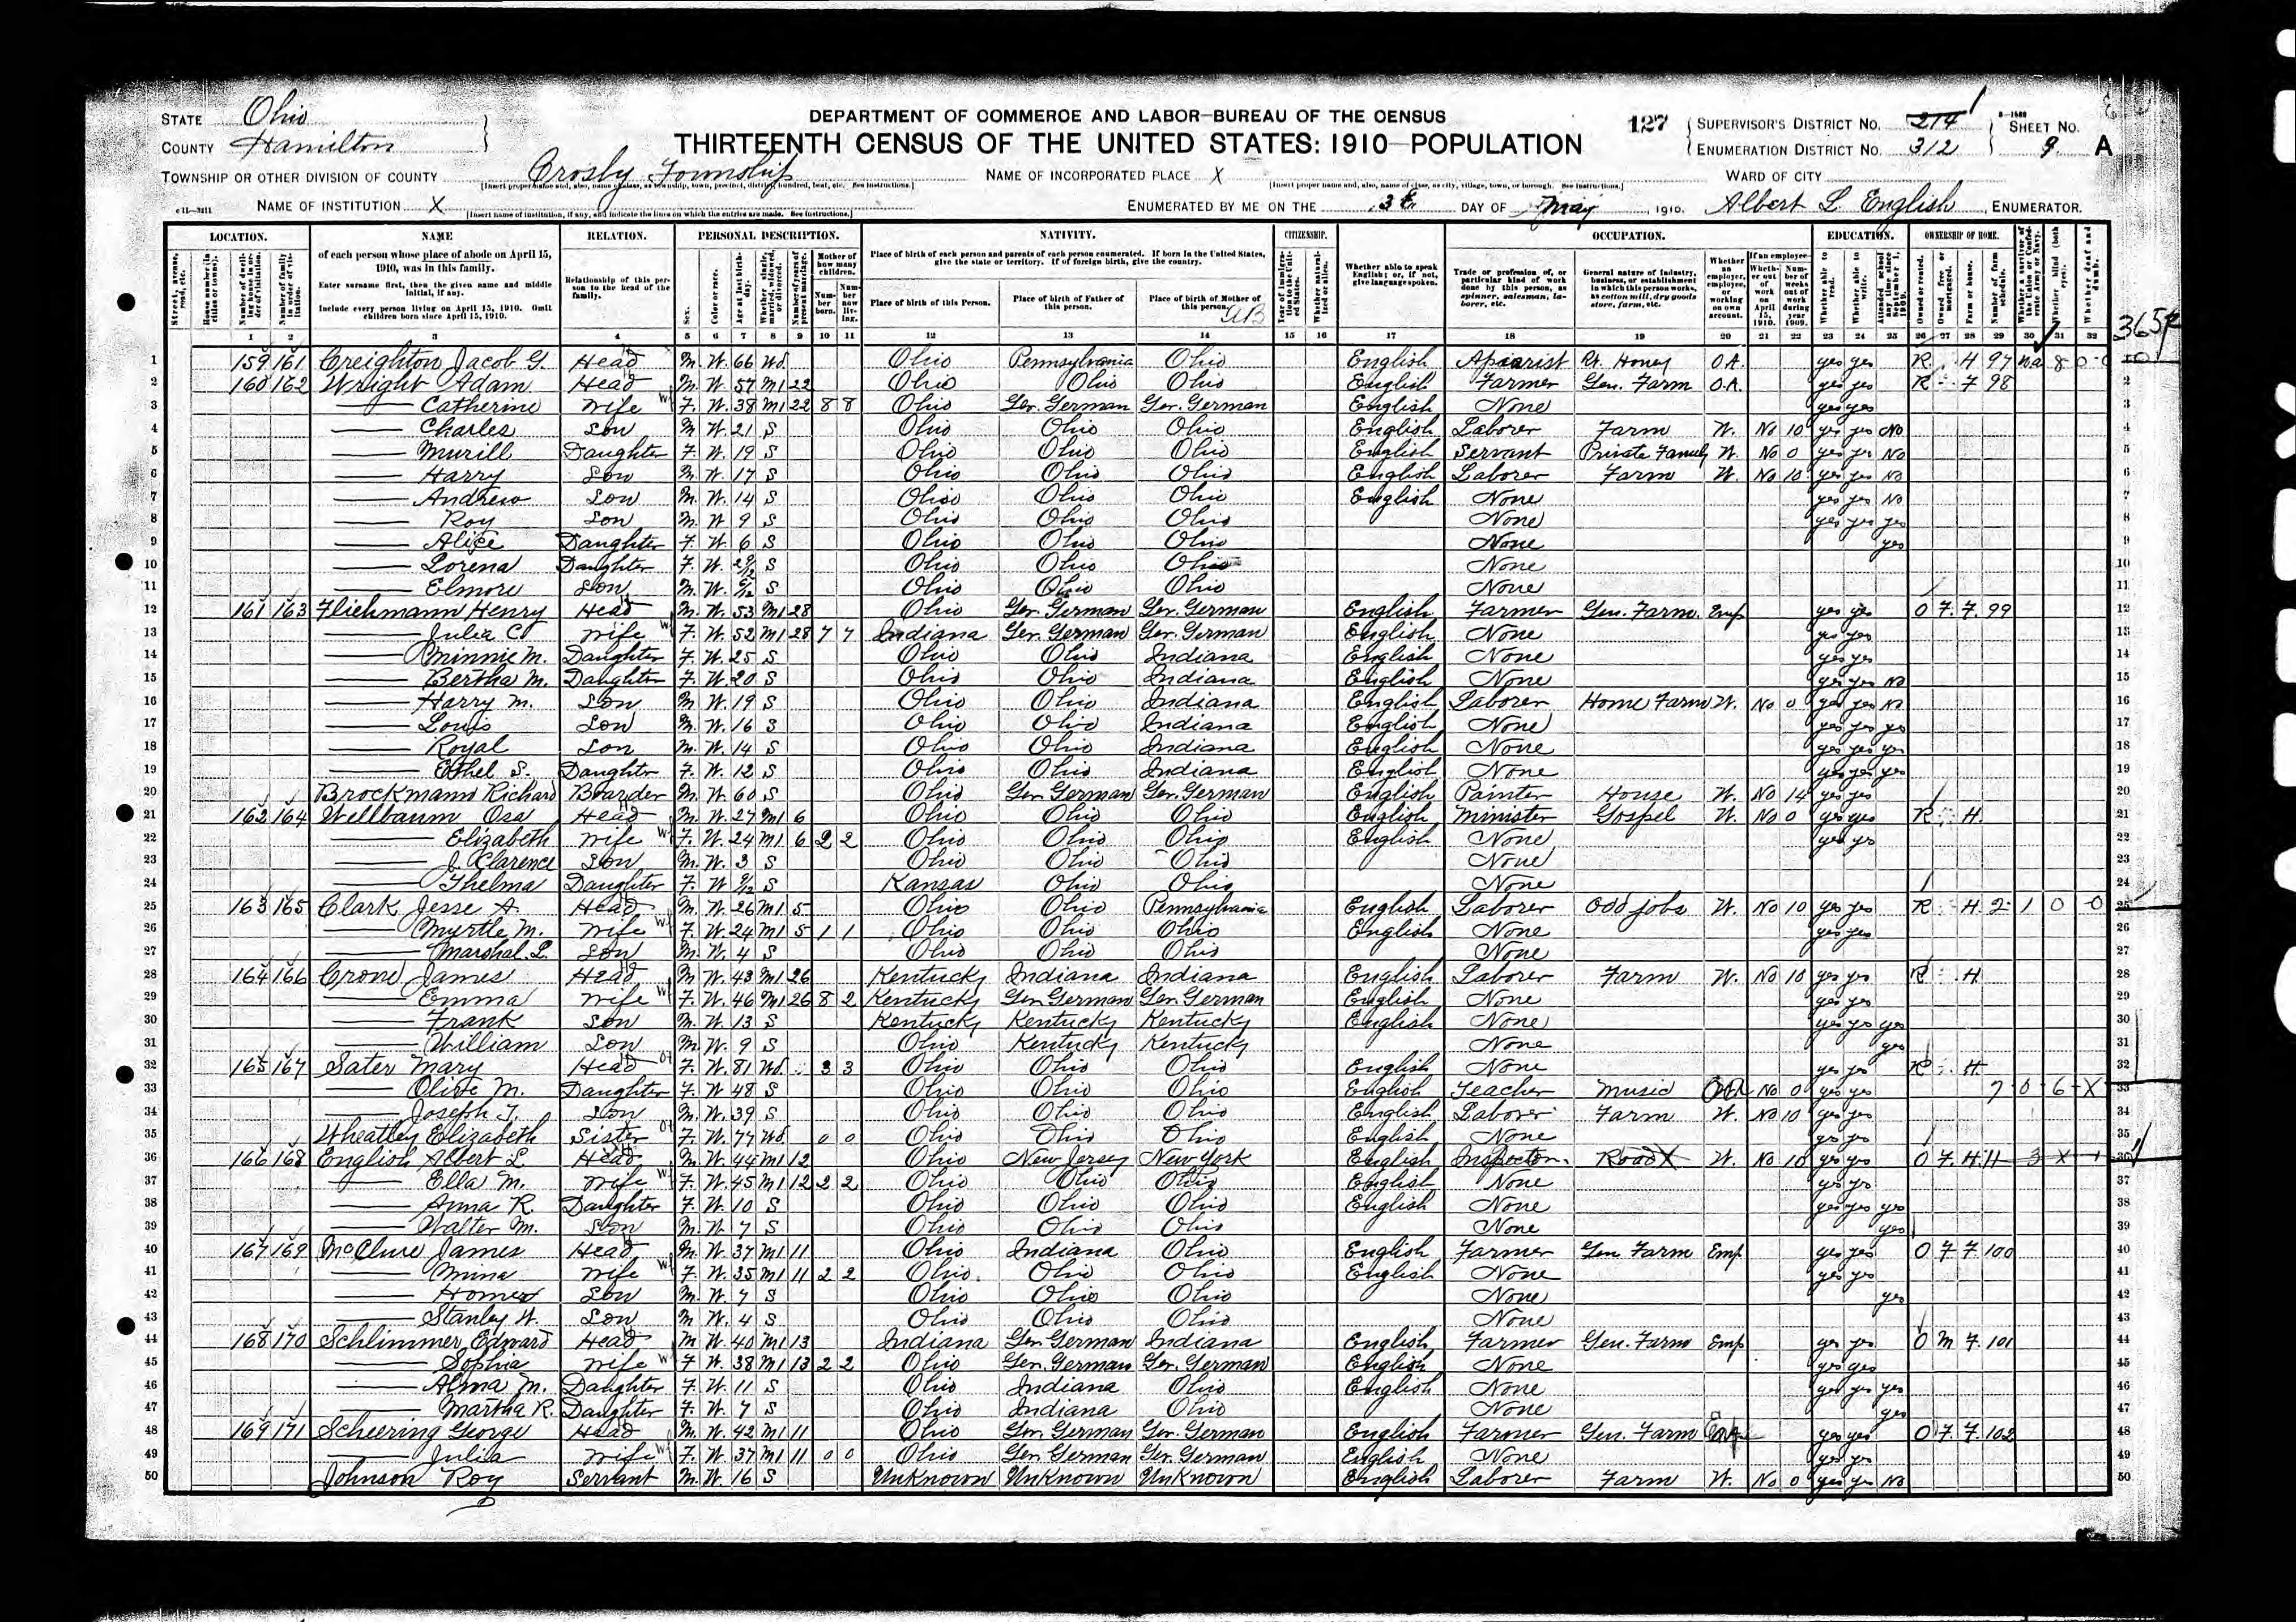 DEPARTMENT OF COMMERCE AND LABOR-BUREAU OF THE CENSUS
THIRTEENTH CENSUS OF THE UNITED STATES: 1910-POPULATION
STATE Ohio
COUNTY Hamilton
127 SUPERVISOR'S DISTRICT No. 214 1 SHEET No.
ENUMERATION DISTRICT No. 312 9 A
TOWNSHIP OR OTHER DIVISION OF COUNTY Crosby Township NAME OF INCORPORATED PLACE X WARD OF CITY
NAME OF INSTITUTION X ENUMERATED BY ME ON THE 3d DAY OF May, 1910. Albert L. English, ENUMERATOR.
LOCATION. NAME RELATION. PERSONAL DESCRIPTION. NATIVITY. CITIZENSHIP. OCCUPATION. EDUCATION. OWNERSHIP OF HOME.
of each person whose place of abode on April 15, 1910, was in this family.
Enter surname first, then the given name and middle initial, if any.
Include every person living on April 15, 1910. Omit children born since April 15, 1910.
Relationship of this person to the head of the family.
Place of birth of each person and parents of each person enumerated. If born in the United States, give the state or territory. If of foreign birth, give the country.
Place of birth of this Person. Place of birth of Father of this person. Place of birth of Mother of this person.
Whether able to speak English; or, if not, give language spoken.
Trade or profession of, or particular kind of work done by this person, as spinner, salesman, laborer, etc.
General nature of industry, business, or establishment in which this person works, as cotton mill, dry goods store, farm, etc.
1 2 3 4 5 6 7 8 9 10 11 12 13 14 15 16 17 18 19 20 21 22 23 24 25 26 27 28 29 30 31 32
1 159 161 Creighton Jacob G. Head M. W. 66 Wd. Ohio Pennsylvania Ohio English Apiarist Honey O.A. yes yes R H 97
2 160 162 Wright Adam Head M. W. 57 M1 22 Ohio Ohio Ohio English Farmer Gen. Farm O.A. yes yes R F 98
3 Catherine Wife F. W. 38 M1 22 8 8 Ohio Ger. German Ger. German English None yes yes
4 Charles Son M W. 21 S Ohio Ohio Ohio English Laborer Farm W. No 10 yes yes No
5 Murill Daughter F. W. 19 S Ohio Ohio Ohio English Servant Private Family W. No 0 yes yes No
6 Harry Son M. W. 17 S Ohio Ohio Ohio English Laborer Farm W. No 10 yes yes No
7 Andrew Son M. W. 14 S Ohio Ohio Ohio English None yes yes No
8 Roy Son M. W 9 S Ohio Ohio Ohio None yes yes yes
9 Alice Daughter F. W. 6 S Ohio Ohio Ohio None yes
10 Lorena Daughter F. W. S Ohio Ohio Ohio None
11 Elmore Son M. W. S Ohio Ohio Ohio None
12 161 163 Fliehmann Henry Head M. W. 53 M1 28 Ohio Ger. German Ger. German English Farmer Gen. Farm. Emp yes yes O F. F. 99
13 Julia C. Wife F. W. 52 M1 28 7 7 Indiana Ger. German Ger. German English None yes yes
14 Minnie M. Daughter F. W. 25 S Ohio Ohio Indiana English None yes yes
15 Bertha M. Daughter F. W. 20 S Ohio Ohio Indiana English None yes yes No
16 Harry M. Son M W. 19 S Ohio Ohio Indiana English Laborer Home Farm W. No 0 yes yes No
17 Louis Son M. W. 16 S Ohio Ohio Indiana English None yes yes yes
18 Royal Son M. W. 14 S Ohio Ohio Indiana English None yes yes yes
19 Ethel S. Daughter F. W. 12 S Ohio Ohio Indiana English None yes yes yes
20 Brockmann Richard Boarder M. W. 60 S Ohio Ger. German Ger. German English Painter House W. No 14 yes yes
21 162 164 Wellbaum Osa Head M. W. 27 M1 6 Ohio Ohio Ohio English Minister Gospel W. No 0 yes yes R H.
22 Elizabeth Wife F. W. 24 M1 6 2 2 Ohio Ohio Ohio English None yes yes
23 J. Clarence Son M. W. 3 S Ohio Ohio Ohio None
24 Thelma Daughter F. W 9/12 S Kansas Ohio Ohio None
25 163 165 Clark Jesse A. Head M. W. 26 M1 5 Ohio Ohio Pennsylvania English Laborer Odd jobs W. No 10 yes yes R H 2 1 0 0
26 Myrtle M. Wife F. W. 24 M1 5 1 1 Ohio Ohio Ohio English None yes yes
27 Marshal L. Son M. W. 4 S Ohio Ohio Ohio None
28 164 166 Crone James Head M W. 48 M1 26 Kentucky Indiana Indiana English Laborer Farm W. No 10 yes yes R H
29 Emma Wife F. W. 46 M1 26 8 2 Kentucky Ger. German Ger. German English None yes yes
30 Frank Son M. W. 13 S Kentucky Kentucky Kentucky English None yes yes yes
31 William Son M. W. 9 S Ohio Kentucky Kentucky None yes
32 165 167 Sater Mary Head F. W. 81 Wd. 3 3 Ohio Ohio Ohio English None yes yes R H
33 Olive M. Daughter F. W 48 S Ohio Ohio Ohio English Teacher Music OA No 0 yes yes 7 0 6 X
34 Joseph T. Son M. W. 39 S Ohio Ohio Ohio English Laborer Farm W. No 10 yes yes
35 Wheatley Elizabeth Sister F. W. 77 Wd 0 0 Ohio Ohio Ohio English None yes yes
36 166 168 English Albert L Head M. W. 44 M1 12 Ohio New Jersey New York English Inspector Road W. No 10 yes yes O F. H 11 3 X 1
37 Ella M. Wife F. W. 45 M1 12 2 2 Ohio Ohio Ohio English None yes yes
38 Anna R. Daughter F. W. 10 S Ohio Ohio Ohio English None yes yes yes
39 Walter M. Son M. W 7 S Ohio Ohio Ohio None yes
40 167 169 McClure James Head M. W. 37 M1 11 Ohio Indiana Ohio English Farmer Gen. Farm Emp yes yes O F F. 100
41 Mina Wife F. W. 35 M1 11 2 2 Ohio Ohio Ohio English None yes yes
42 Homer Son M. W. 7 S Ohio Ohio Ohio None yes
43 Stanley W. Son M W. 4 S Ohio Ohio Ohio None
44 168 170 Schlimmer Edward Head M W. 40 M1 13 Indiana Ger. German Indiana English Farmer Gen. Farm Emp yes yes O M F. 101
45 Sophia Wife F W. 38 M1 13 2 2 Ohio Ger. German Ger. German English None yes yes
46 Alma M. Daughter F. W. 11 S Ohio Indiana Ohio English None yes yes yes
47 Martha R. Daughter F. W. 7 S Ohio Indiana Ohio None yes
48 169 171 Scheering George Head M. W. 42 M1 11 Ohio Ger. German Ger. German English Farmer Gen. Farm yes yes O F. F. 102
49 Julia Wife F. W. 37 M1 11 0 0 Ohio Ger. German Ger. German English None yes yes
50 Johnson Roy Servant M. W. 16 S Unknown Unknown Unknown English Laborer Farm W. No 0 yes yes No